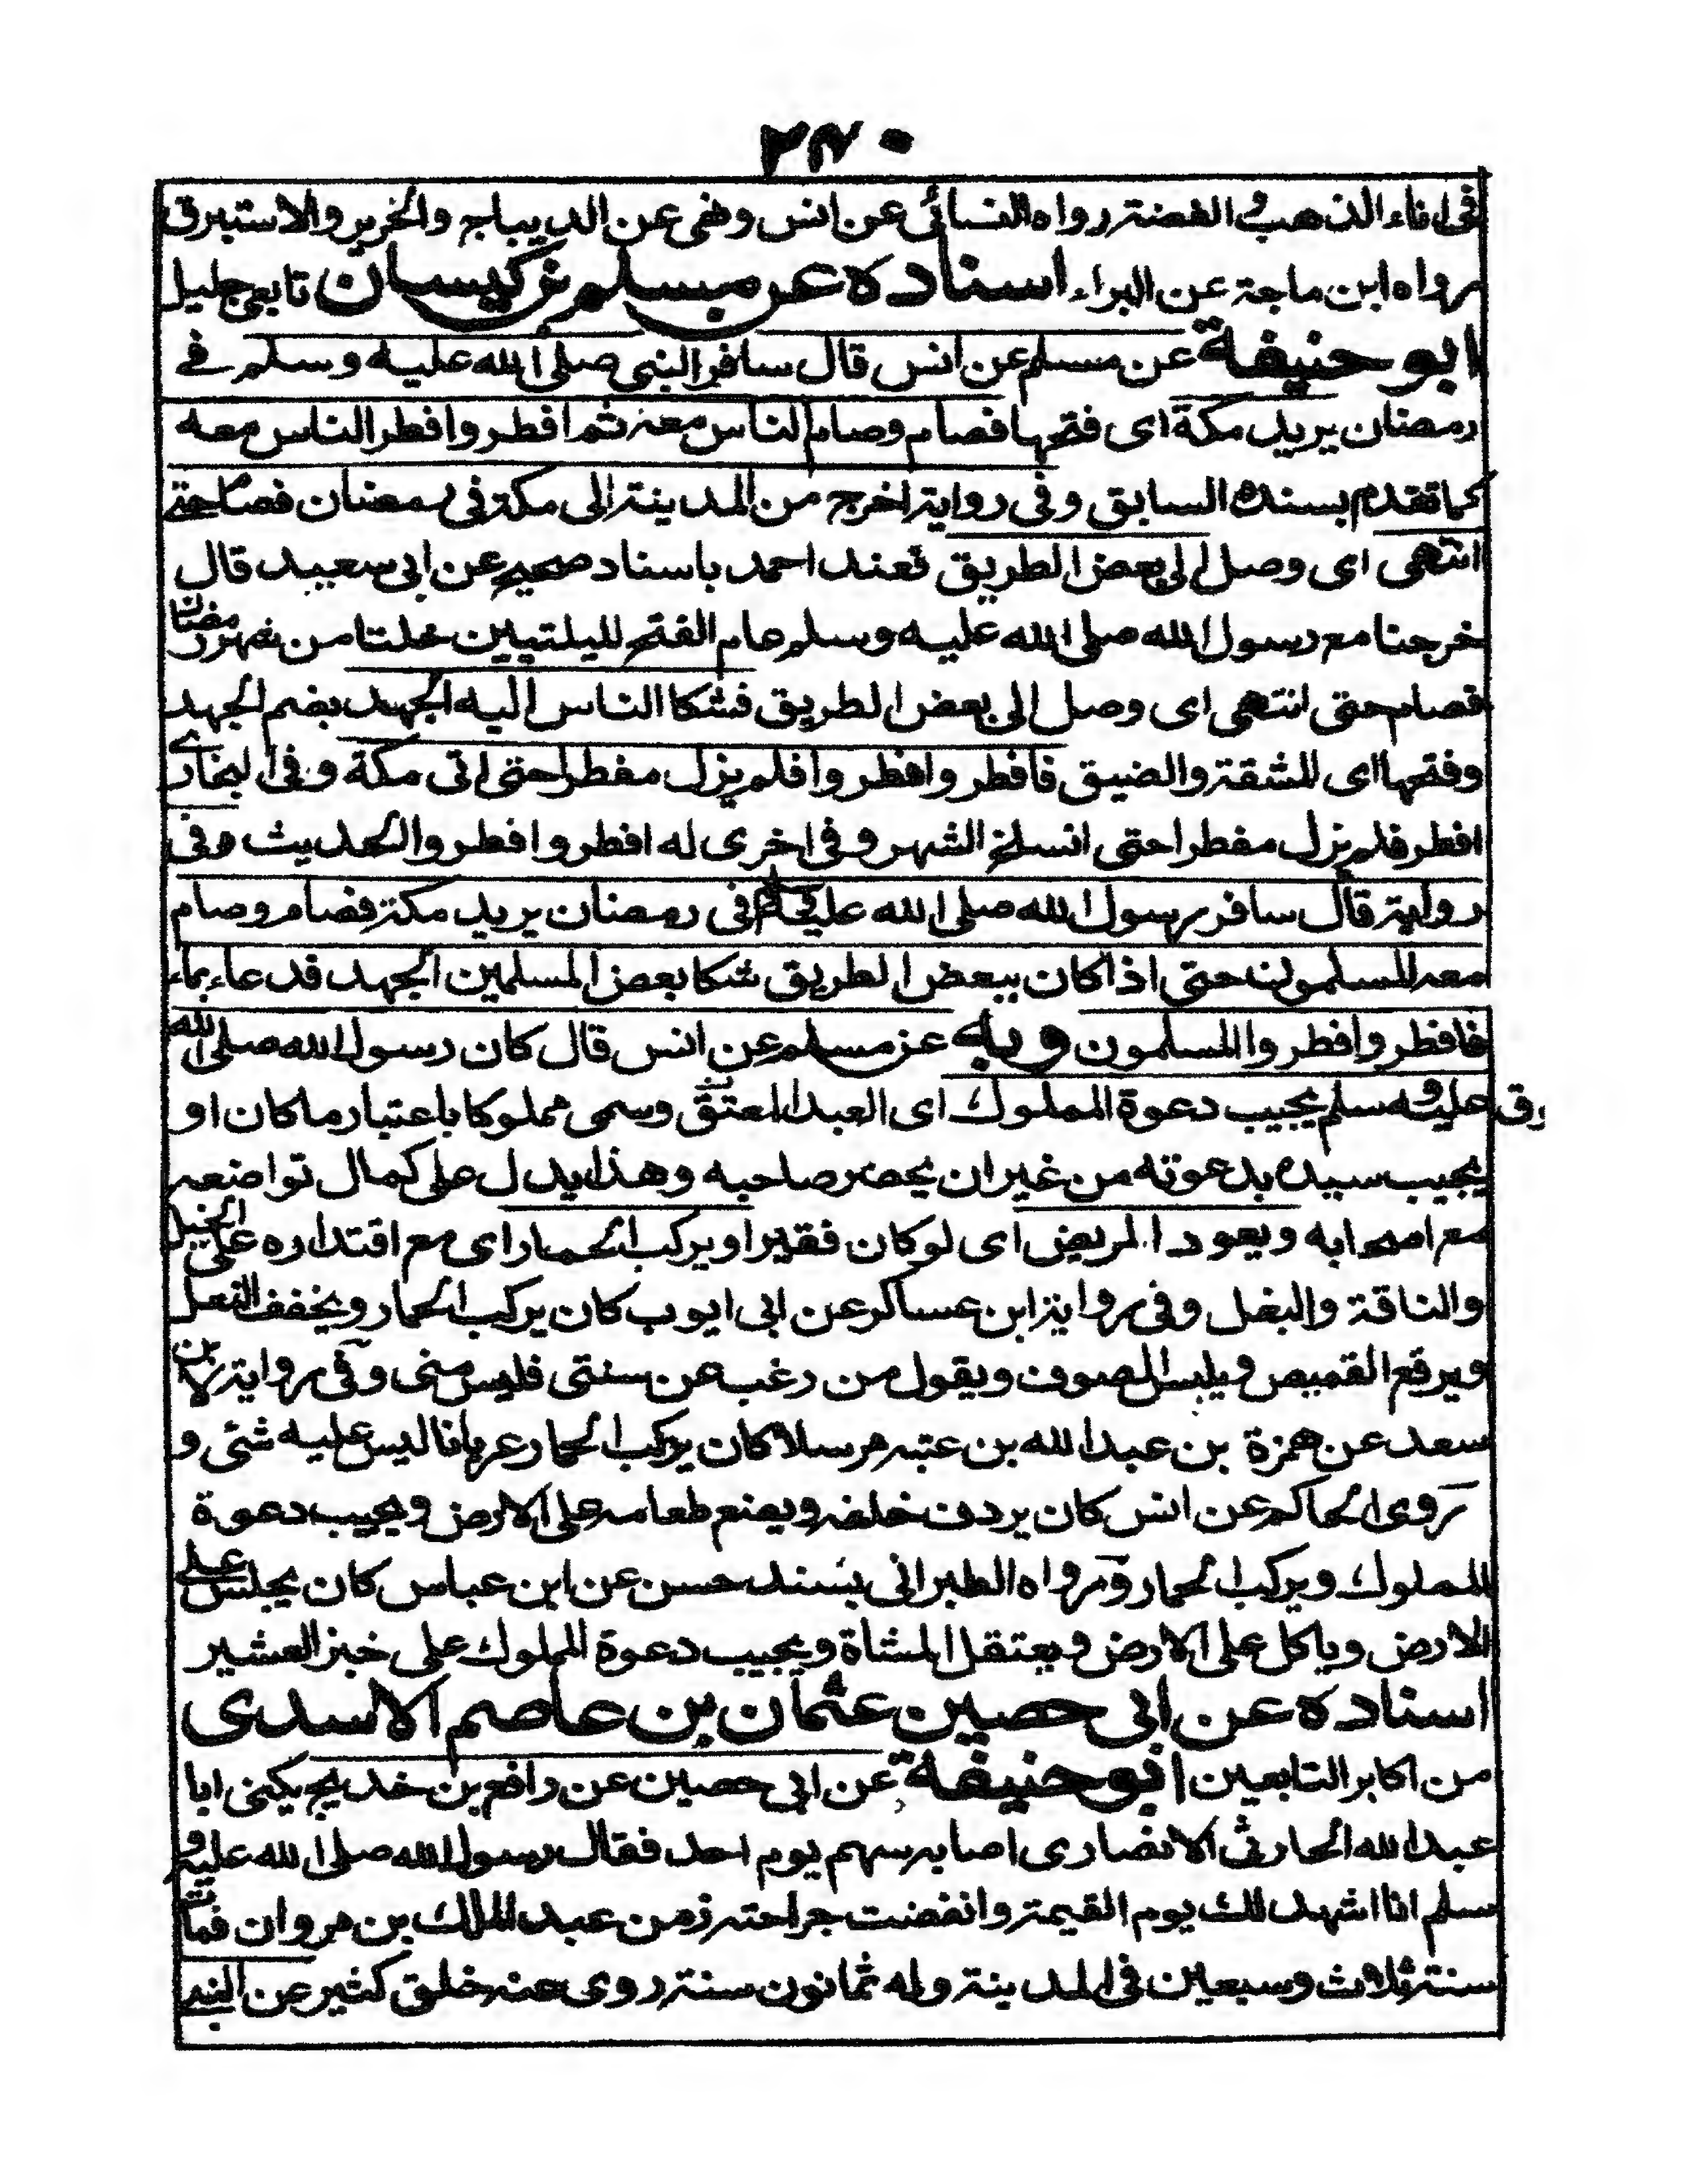 ٢٤٠
فى اناء الذهب والفضة رواه النسائى عن انس ونهى عن الديباج والحرير والاستبرق
رواه ابن ماجة عن البراء اسناده عن مسلم بن كيسان تابعى جليل
ابو حنيفة عن مسلم عن انس قال سافر النبى صلى الله عليه وسلم فى
رمضان يريد مكة اى فتحها فصام وصام الناس معه ثم افطر وافطر الناس معه
كما تقدم بسنده السابق وفى رواية اخرج من المدينة الى مكة فى رمضان فصام حتى
انتهى اى وصل الى بعض الطريق فعند احمد باسناد صحيح عن ابى سعيد قال
خرجنا مع رسول الله صلى الله عليه وسلم عام الفتح لليلتيين خلتا من شهر رمضان
فصام حتى انتهى اى وصل الى بعض الطريق فشكا الناس اليه الجهد بضم الجهد
وفتحها اى المشقة والضيق فافطر وافطروا فلم يزل مفطرا حتى اتى مكة وفى البخارى
افطر فلم يزل مفطرا حتى انسلخ الشهر وفى اخرى له افطر وافطروا الحديث وفى
رواية قال سافر رسول الله صلى الله عليه وسلم فى رمضان يريد مكة فصام وصام
معه المسلمون حتى اذا كان ببعض الطريق شكا بعض المسلمين الجهد فدعا بماء
فافطر وافطر والمسلمون وبه عن مسلم عن انس قال كان رسول الله صلى الله
عليه وسلم يجيب دعوة المملوك اى العبد المعتق وسمى مملوكا باعتبار ما كان او
يجيب سيده بدعوته من غير ان يحضر صاحبه وهذا يدل على كمال تواضعه
مع اصحابه ويعود المريض اى لو كان فقيرا ويركب الحمار اى مع اقتداره على الخيل
والناقة والبغل وفى رواية ابن عساكر عن ابى ايوب كان يركب الحمار ويخفف النعل
ويرقع القميص ويلبس الصوف ويقول من رغب عن سنتى فليس منى وفى رواية لابن
سعد عن حمزة بن عبد الله بن عتبه مرسلا كان يركب الحمار عريانا ليس عليه شئ و
روى الحاكم عن انس كان يردف خلفه ويضع طعامه على الارض ويجيب دعوة
المملوك ويركب الحمار ورواه الطبرانى بسند حسن عن ابن عباس كان يجلس على
الارض وياكل على الارض ويعتقل المشاة ويجيب دعوة المملوك على خبز العشير
اسناده عن ابى حصين عثمان بن عاصم الاسدى
من اكابر التابعين ابو حنيفة عن ابى حصين عن رافع بن خديج يكنى ابا
عبد الله الحارثى الانصارى اصابه سهم يوم احد فقال رسول الله صلى الله عليه و
سلم انا اشهد لك يوم القيمة وانفضت جراحته زمن عبد الملك بن مروان فمات
سنة ثلاث وسبعين فى المدينة وله ثمانون سنة روى عنه خلق كثير عن النبى